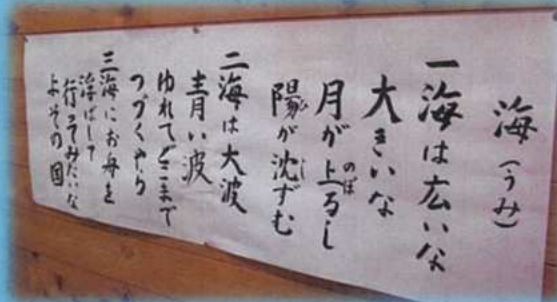 海(うみ)
一海は広いな
大きいな
月が上(のぼ)るし
陽(ひ)が沈(し)ずむ
二海は大波
青い波
ゆれてどこまで
つづくやら
三海にお舟を
浮ばして
行ってみたいな
よその国